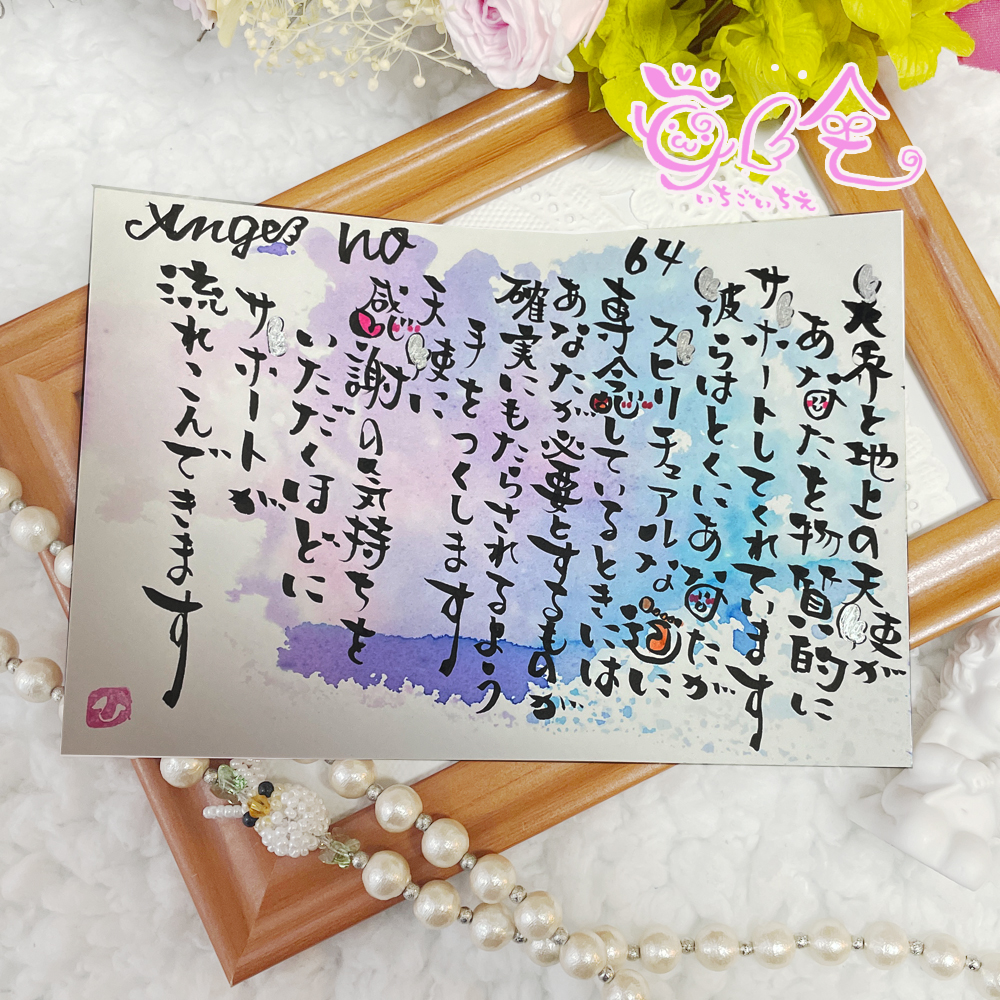 Angel no 64
天界と地上の天使が
あなたを物質的に
サポートしてくれています
彼らはとくにあなたが
スピリチュアルな道に
専念しているときには
あなたが必要とするものが
確実にもたらされるよう
手をつくします
天使に
感謝の気持ちを
いただくほどに
サポートが
流れこんできます
いちごいちえ